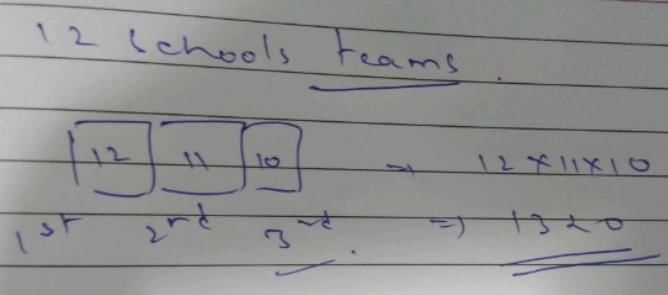 12 schools teams.
12 11 10 → 12×11×10
1st 2nd 3rd. ⇒ 1320